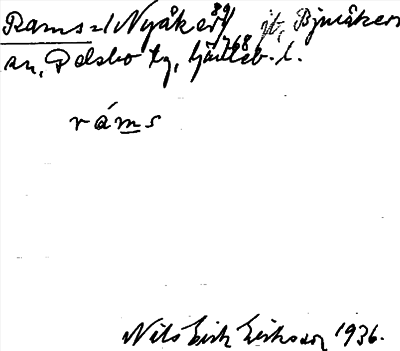 Rams=/Nyåker 89/ jt, Bjuråker
sn, Delsbo tg, Gävleb. l.
768
ráms
Nils Erik Eriksson 1936.